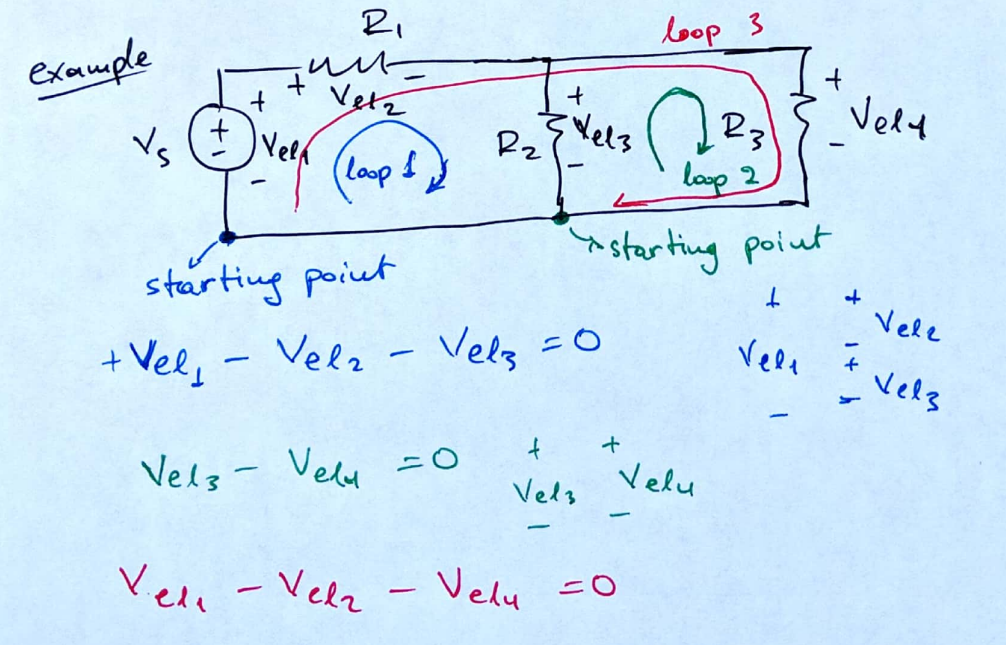 example
R₁
loop 3
+ Vel₂ −
Vs
+
−
+
Vel₁
−
loop 1
R₂
+
Vel₃
−
loop 2
R₃
+
Vel₄
−
starting point
starting point
+Vel₁ − Vel₂ − Vel₃ = 0
+
Vel₁
−
+
Vel₂
−
+
Vel₃
−
Vel₃ − Vel₄ = 0
+
Vel₃
−
+
Vel₄
−
Vel₁ − Vel₂ − Vel₄ = 0